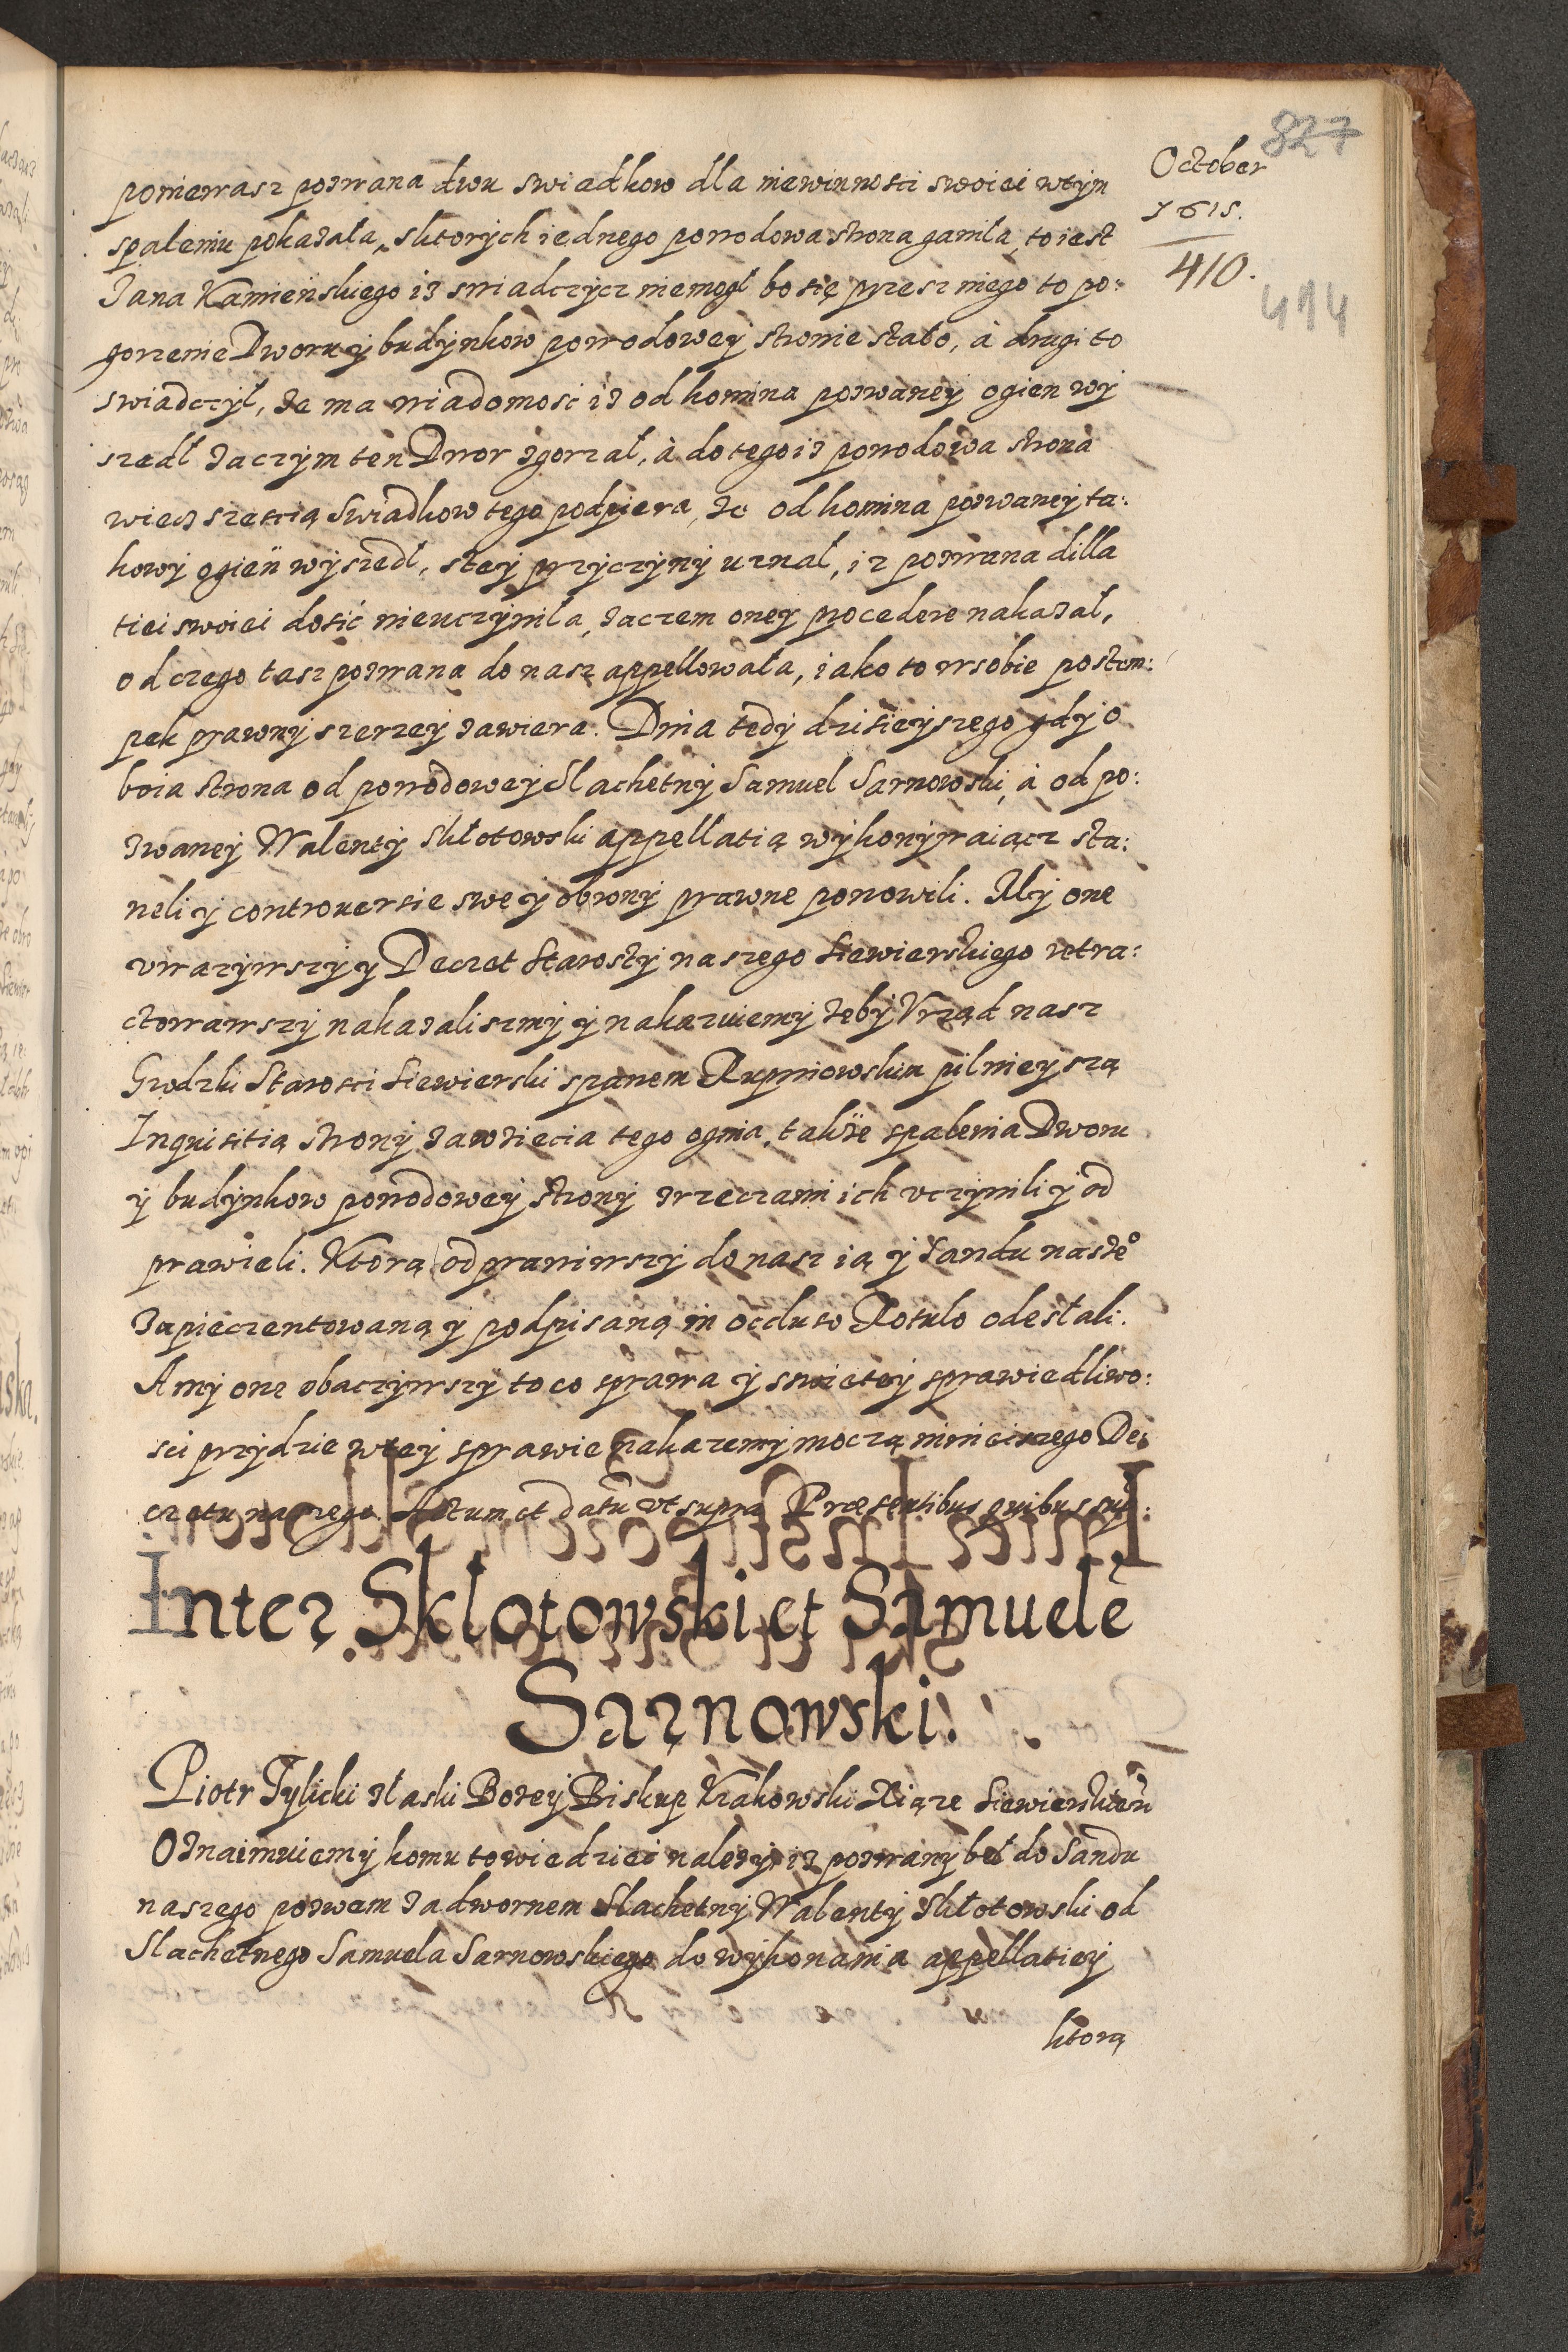 827
October
1615.
410.
414
poniewasz pozwana dwu swiedkow dla niewinnosci swoiei wtym
spaleniu pokazała, sktorych iednego powodowa strona ganiła, to iest
Jana Kamieńskiego iz swiadczycz niemogł bo się przesz niego to po:
gorzenie Dworu y budynkow powodowey stronie stało, à drugi to
swiadczył, ze ma wiadomosc iz od komina pozwaney ogien wy
szedł zaczym ten Dwor zgorzał, à do tego iz powodowa strona
wieczszescią Swiadkow tego podpiera, ze od komina pozwaney ta:
kowy ogień wyszedł, stey przyczyny uznał, iz pozwana dilla
tiei swoiei dosić nieuczyniła, zaczem oney procedere nakazał,
od czego tasz pozwana do nasz appellowała, iako to wsobie postem:
pek prawny szerzey zawiera. Dnia tedy dzisieyszego gdy o
boia strona od powodowey Slachetny Samuel Sarnowski, à od po:
zwaney Walenty Skłotowski appellatią wykonywaiącz sta:
neli y controuersie swe y obrony prawne ponowili. My one
vwazywszy y Decret Starosty naszego Siewierskiego retra:
ctowawszy nakazaliszmy y nakazuiemy zeby Vrząd nasz
Grodzki Starosci Siewierski spanem Rupniowskim pilnieyszą
Inquisitią strony zawziecia tego ognia, takze spalenia Dworu
y budynkow powodowey strony zrzeczami ich vczynili y od
prawieli. Ktorą odprawiwszy do nasz ią y Sandu nasze°
zapieczentowaną y podpisaną in occluso Rotulo odesłali.
A my one obaczywszy to co sprawa y swietey sprawiedliwo:
sci przydzie wtey sprawie nakazemy moczą ninieiszego De:
cretu naszego. Actum et datũ vt supra Præsentibus quibus sup:
Inter Sklotowski et Samuelẽ
Sarnowski.
Piotr Tylicki złaski Bozey Biskup Krakowski Xiąze Siewierskiem
Oznaimuiemy komu to wiedziec nalezy iz pozwany beł do Sandu
naszego pozwem zadwornem Slachetny Walenty Skłotowski od
Slachetnego Samuela Sarnowskiego do wykonania appellatiey
ktorą